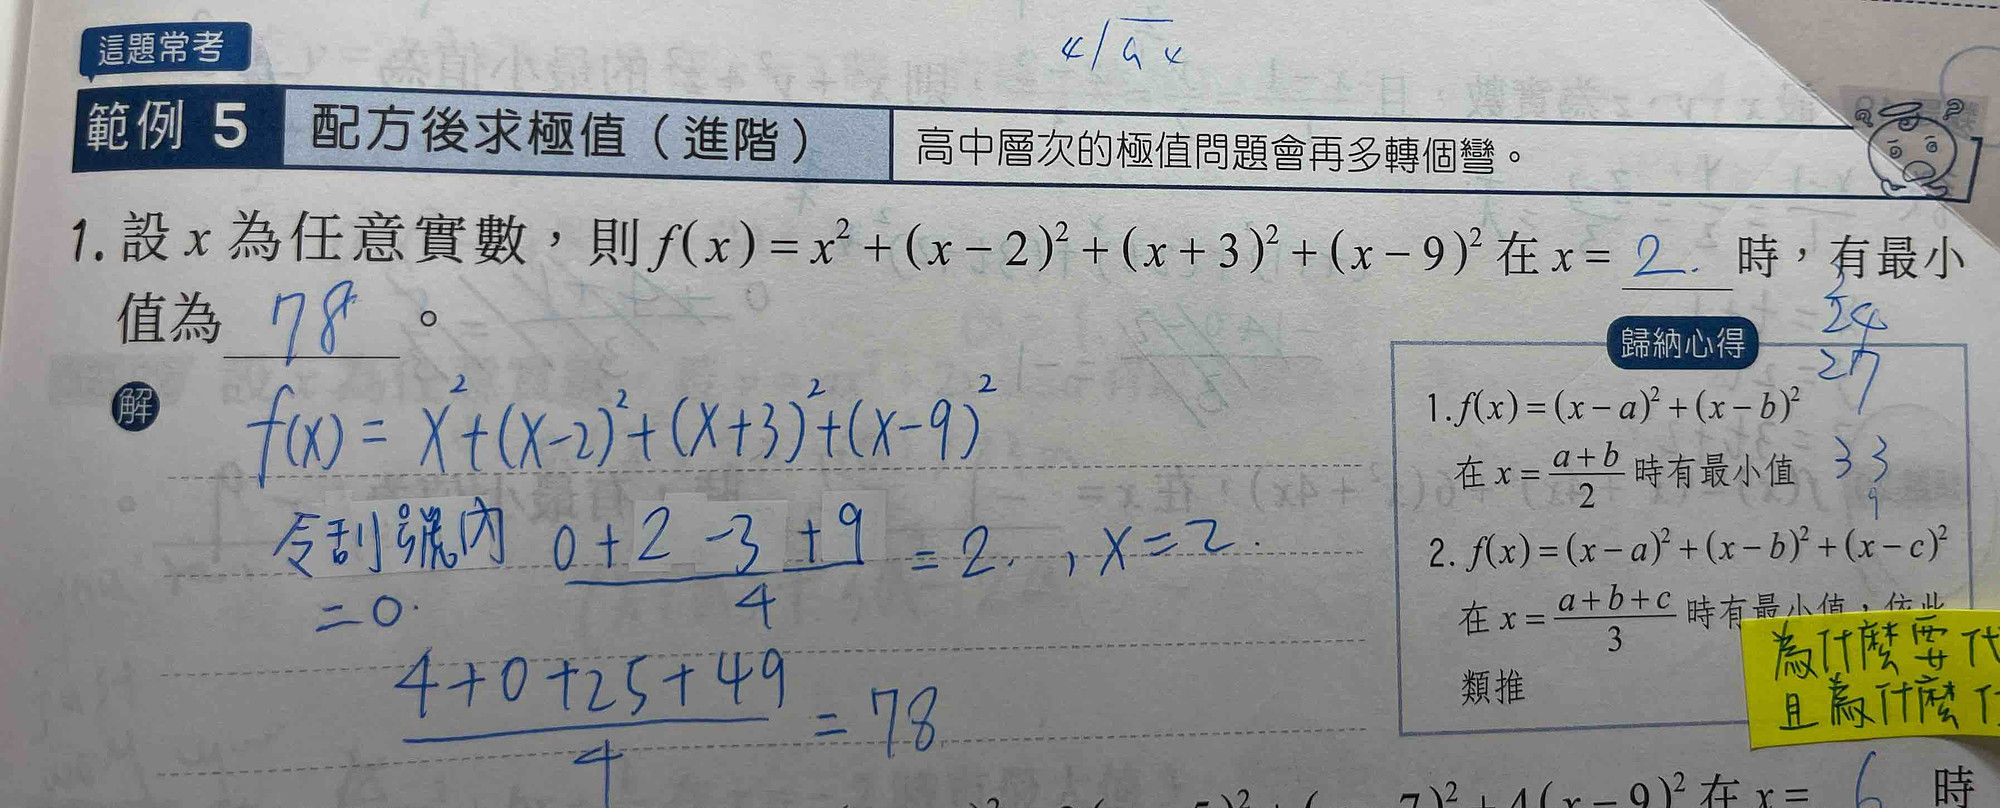 4/94
這題常考
範例 5 配方後求極值（進階） 高中層次的極值問題會再多轉個彎。
1. 設 x 為任意實數，則 f(x) = x² + (x − 2)² + (x + 3)² + (x − 9)² 在 x = 2. 時，有最小
值為 78 。
解
f(x) = x² + (x−2)² + (x+3)² + (x−9)²
令刮號內 (0+2−3+9)/4 = 2. , x = 2.
= 0.
(4+0+25+49)/4 = 78
24
27
33
9
歸納心得
1. f(x) = (x − a)² + (x − b)²
在 x = (a + b)/2 時有最小值
2. f(x) = (x − a)² + (x − b)² + (x − c)²
在 x = (a + b + c)/3 時有最小值，依此
類推
為什麼要代
且為什麼
7)² + 4(x − 9)² 在 x = 6 時